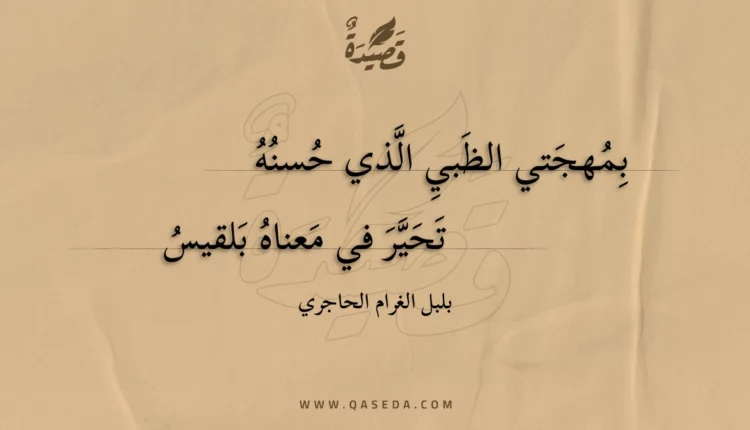 قَصِيدَةٌ
بِمُهجَتي الظَبيِ الَّذي حُسنُهُ
تَحَيَّرَ في مَعناهُ بَلقيسُ
بلبل الغرام الحاجري
WWW.QASEDA.COM